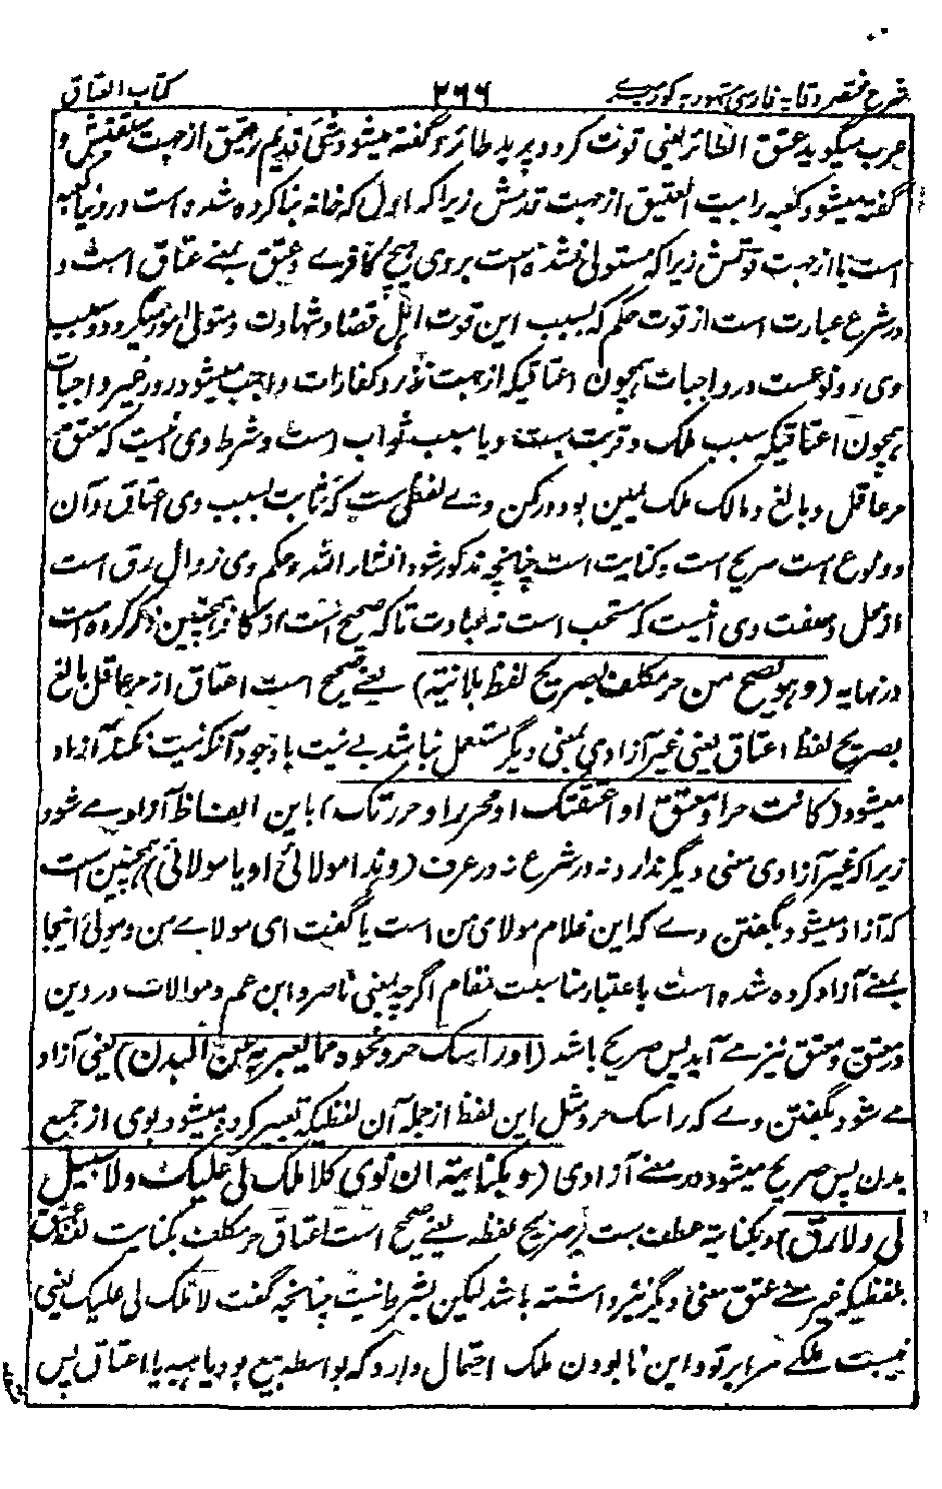 شرح مختصر وقایه فارسی مشهور به کور میری ۲۶۶ کتاب العتاق
عرب میگوید عتق الطائر یعنی قوت کرد و پرید طائر و گفته میشود شیٔ قدیم را عتیق از جهت سبقتش و
گفته میشود کعبه را بیت العتیق از جهت قدمش زیرا که اول که خانه بنا کرده شده است در دنیا کعبه
است یا از جهت قوتش زیرا که مستولی نشده است بر وی هیچ کافرے و عتق بمعنے عتاق است و
در شرع عبارت است از قوت حکم که بسبب این قوت اهل قضا و شهادت و متولی امور میگردد و سبب
وی دو نوعست در واجبات همچون اعتاقیکه از جهت نذر و کفارات واجب میشود و در غیر واجبات
همچون اعتاقیکه بسبب ملک و قربت بست و یا سبب ثواب است و شرط وی نیست که معتق
حر عاقل و بالغ و مالک ملک یمین بود و رکن وے لفظی ست که ثابت بسبب وی عتاق و آن
دو نوع است صریح است و کنایت است چنانچه مذکور شود انشاء الله و حکم وی زوال رق است
از محل و صفت وی آنیست که مستحب است نه عبادت تا که صحیح است از کافر همچنین ذکر کرده است
در نهایه (و هو یصح من حر مکلف بصریح لفظ بلا نیة) یعنے صحیح است اعتاق از حر عاقل بالغ
بصریح لفظ اعتاق یعنی غیر آزادی بمعنی دیگر مستعمل نباشد بے نیت باوجود آنکه نیت نکند آزاد
میشود (کانت حر او معتق او اعتقتک او محرر او حررتک) باین الفاظ آزاد مے شود
زیرا که غیر آزادی معنی دیگر ندارد نه در شرع نه در عرف (و هذا مولائی او یا مولائی) همچنین است
که آزاد میشود بگفتن وے که این غلام مولای من است یا گفت ای مولاے من و مولیٰ اینجا
بمعنے آزاد کرده شده است باعتبار مناسبت مقام اگرچه بمعنی ناصر و ابن عم و موالات در دین
و معتق و معتق نیز مے آید پس صریح باشد (او راسک حر و نحوه مما یعبر به عن البدن) یعنی آزاد
مے شود بگفتن وے که راسک حر و مثل این لفظ از جمله آن لفظیکه تعبیر کرده میشود بوی از جمیع
بدن پس صریح میشود در معنے آزادی (و بکنایته ان نوی کلا ملک لی علیک و لا سبیل
لی و لا رق) و بکنایة عطف ست بر صریح لفظه یعنے صحیح است اعتاق حر مکلف بکنایت لفظ عتق
بلفظیکه غیر معنے عتق معنی دیگر نیز داشته باشد لیکن بشرط نیت چنانچه گفت لا ملک لی علیک یعنی
نیست ملکے مرا بر تو و این نا بودن ملک احتمال دارد که بواسطه بیع بود یا هبه یا اعتاق پس